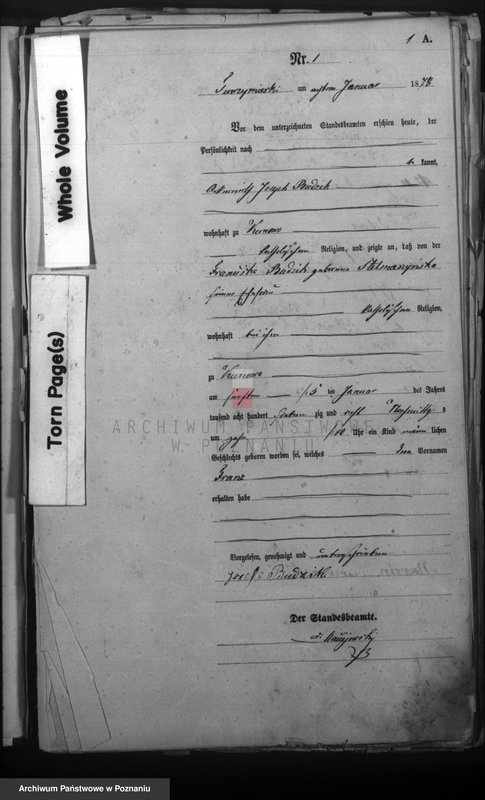 1 A.
Nr. 1
am achten Januar 1878
Vor dem unterzeichneten Standesbeamten erschien heute, der
Persönlichkeit nach
kannt,
Joseph Budzik
wohnhaft zu Kunowo
katholischen Religion, und zeigte an, daß von der
Budzik geborene
seiner Ehefrau
katholischen Religion,
wohnhaft bei ihm
zu Kunowo
am fünften /5 ten Januar des Jahres
tausend acht hundert sieben zig und acht Nachmittags
um zehn /10 Uhr ein Kind männlichen
Geschlechts geboren worden sei, welches den Vornamen
Franz
erhalten habe
Vorgelesen, genehmigt und unterschrieben
Budzik
Der Standesbeamte.
Whole Volume
Torn Page(s)
ARCHIWUM PAŃSTWOWE
W POZNANIU
Archiwum Państwowe w Poznaniu